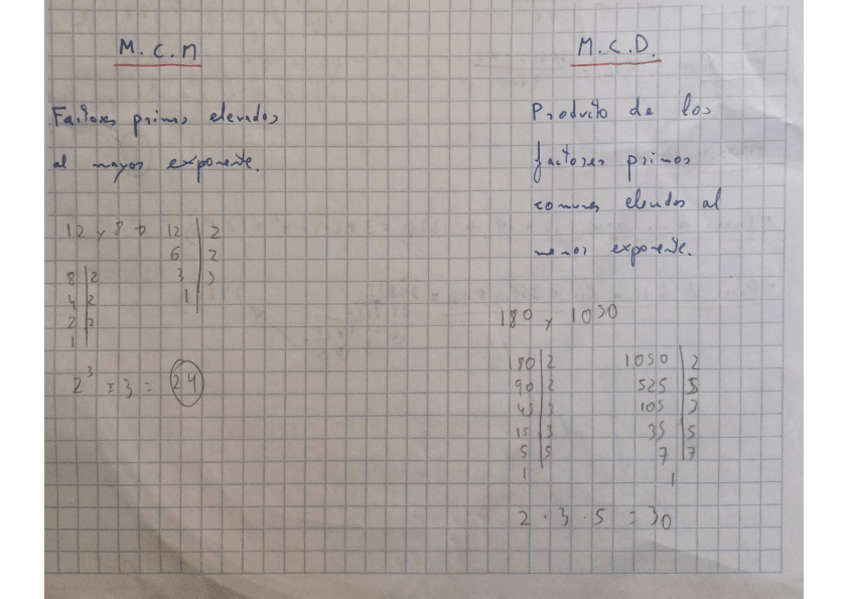 M.C.M
Factores primos elevados
al mayor exponente.
12 y 8 → 12 | 2
6 | 2
3 | 3
1 |
8 | 2
4 | 2
2 | 2
1
2³ = 3 = 24
M.C.D.
Producto de los
factores primos
comunes elevados al
menor exponente.
180 y 1050
180 | 2
90 | 2
45 | 3
15 | 3
5 | 5
1
1050 | 2
525 | 5
105 | 3
35 | 5
7 | 7
1
2 · 3 · 5 = 30